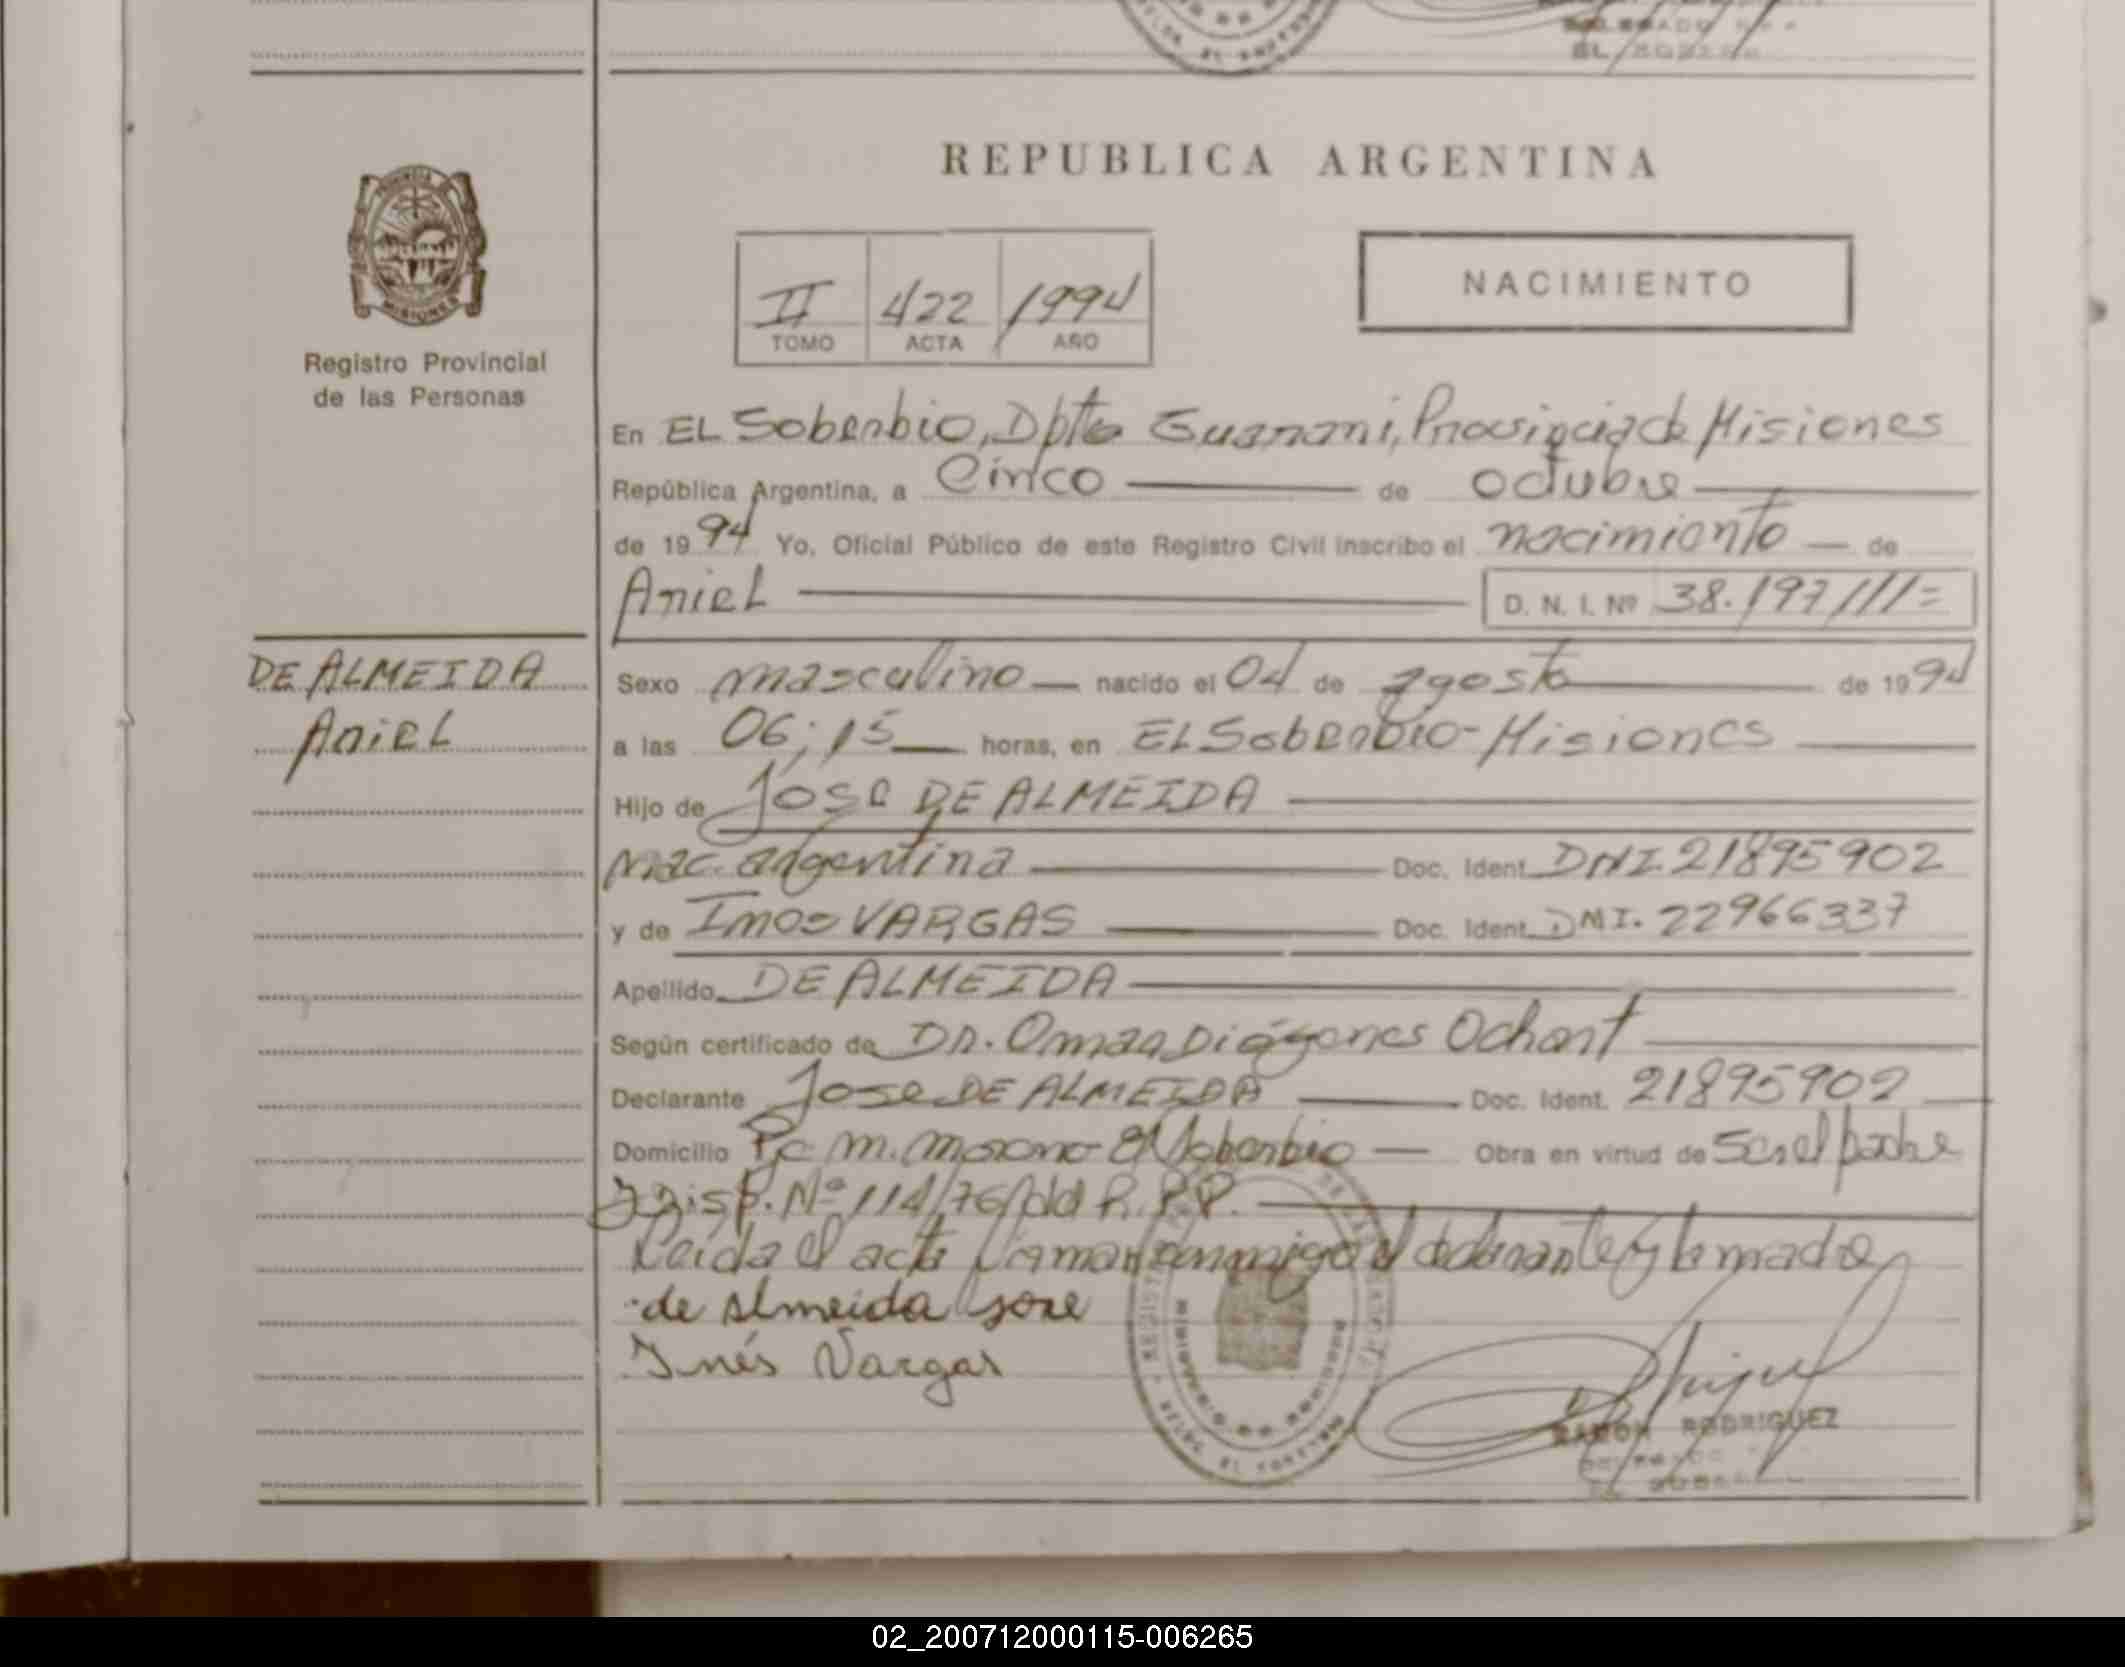 REPUBLICA ARGENTINA
II 422 1994
TOMO ACTA AÑO
NACIMIENTO
PROVINCIA DE
MISIONES
Registro Provincial
de las Personas
En EL Soberbio, Dpto Guarani, Provincia de Misiones
República Argentina, a Cinco de octubre
de 1994 Yo, Oficial Público de este Registro Civil inscribo el nacimiento de
Ariel D. N. I. Nº 38.197111=
DE ALMEIDA
Ariel
Sexo masculino nacido el 04 de agosto de 1994
a las 06;15 horas, en EL Soberbio-Misiones
Hijo de Jose DE ALMEIDA
nac. argentina Doc. Ident. DNI. 21895902
y de Ines VARGAS Doc. Ident. DNI. 22966337
Apellido DE ALMEIDA
Según certificado de Dr. Omar Diógenes
Declarante Jose DE ALMEIDA Doc. Ident. 21895902
Domicilio M. Moreno El Soberbio Obra en virtud de Ser el padre
y Disp. Nº 114/76 del R.P.P.
Leida el acta firman conmigo el declarante y la madre
de Almeida jose
Inés Vargas
RAMON RODRIGUEZ
02_200712000115-006265